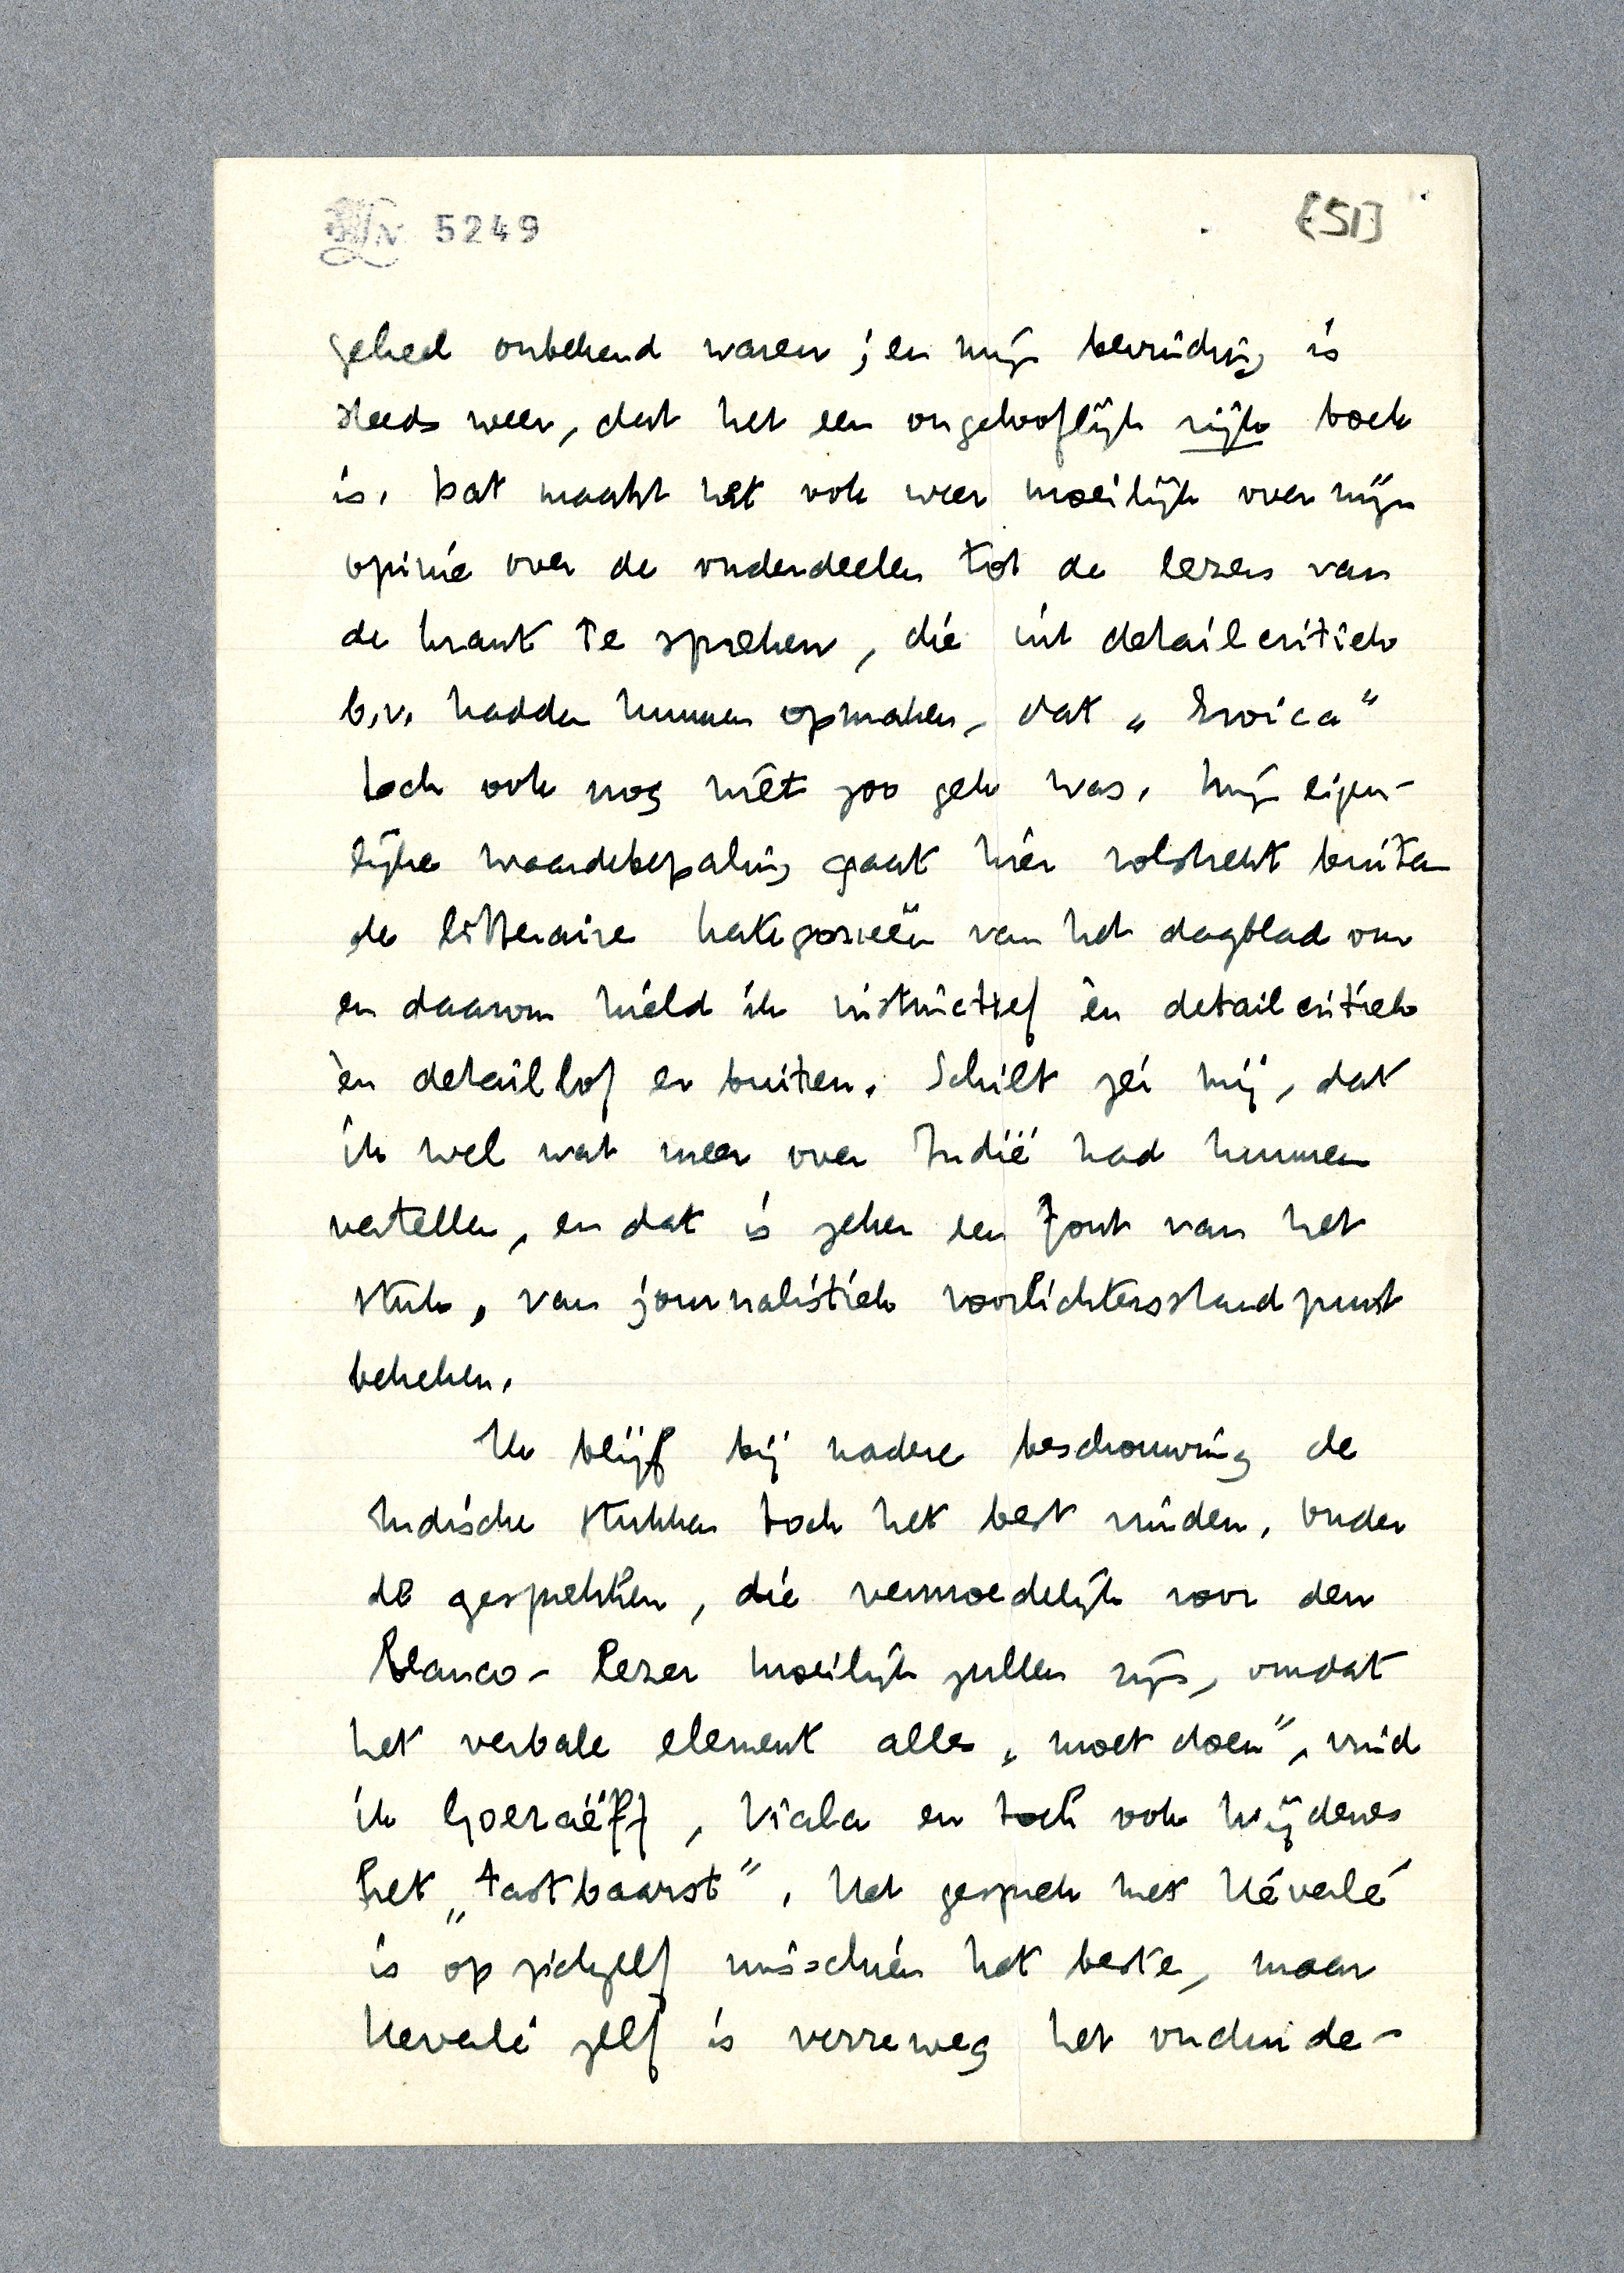 5249
[51]
geheel onbekend waren; en mijn bevinding is
steeds weer, dat het een ongelooflijk rijk boek
is. Dat maakt het ook weer moeilijk over mijn
opinie over de onderdeelen tot de lezers van
de krant te spreken, die uit detailcritiek
b.v. hadden kunnen opmaken, dat „Eroica”
toch ook nog niet zoo gek was. Mijn eigen-
lijke waardebepaling gaat hier volstrekt buiten
de litteraire kategorieën van het dagblad om
en daarom hield ik instinctief èn detailcritiek
èn detaillof er buiten. Schilt zei mij, dat
ik wel wat meer over Indië had kunnen
vertellen, en dat is zeker een fout van het
stuk, van journalistiek voorlichtersstandpunt
bekeken.
Ik blijf bij nadere beschouwing de
Indische stukken toch het best vinden. Onder
de gesprekken, die vermoedelijk voor den
blanco-lezer moeilijk zullen zijn, omdat
het verbale element alles „moet doen”, vind
ik Goeraëff, Viala en toch ook Wijdenes
het „tastbaarst”. Het gesprek met Héverlé
is op zichzelf misschien het beste, maar
Heverlé zelf is verreweg het onduide-